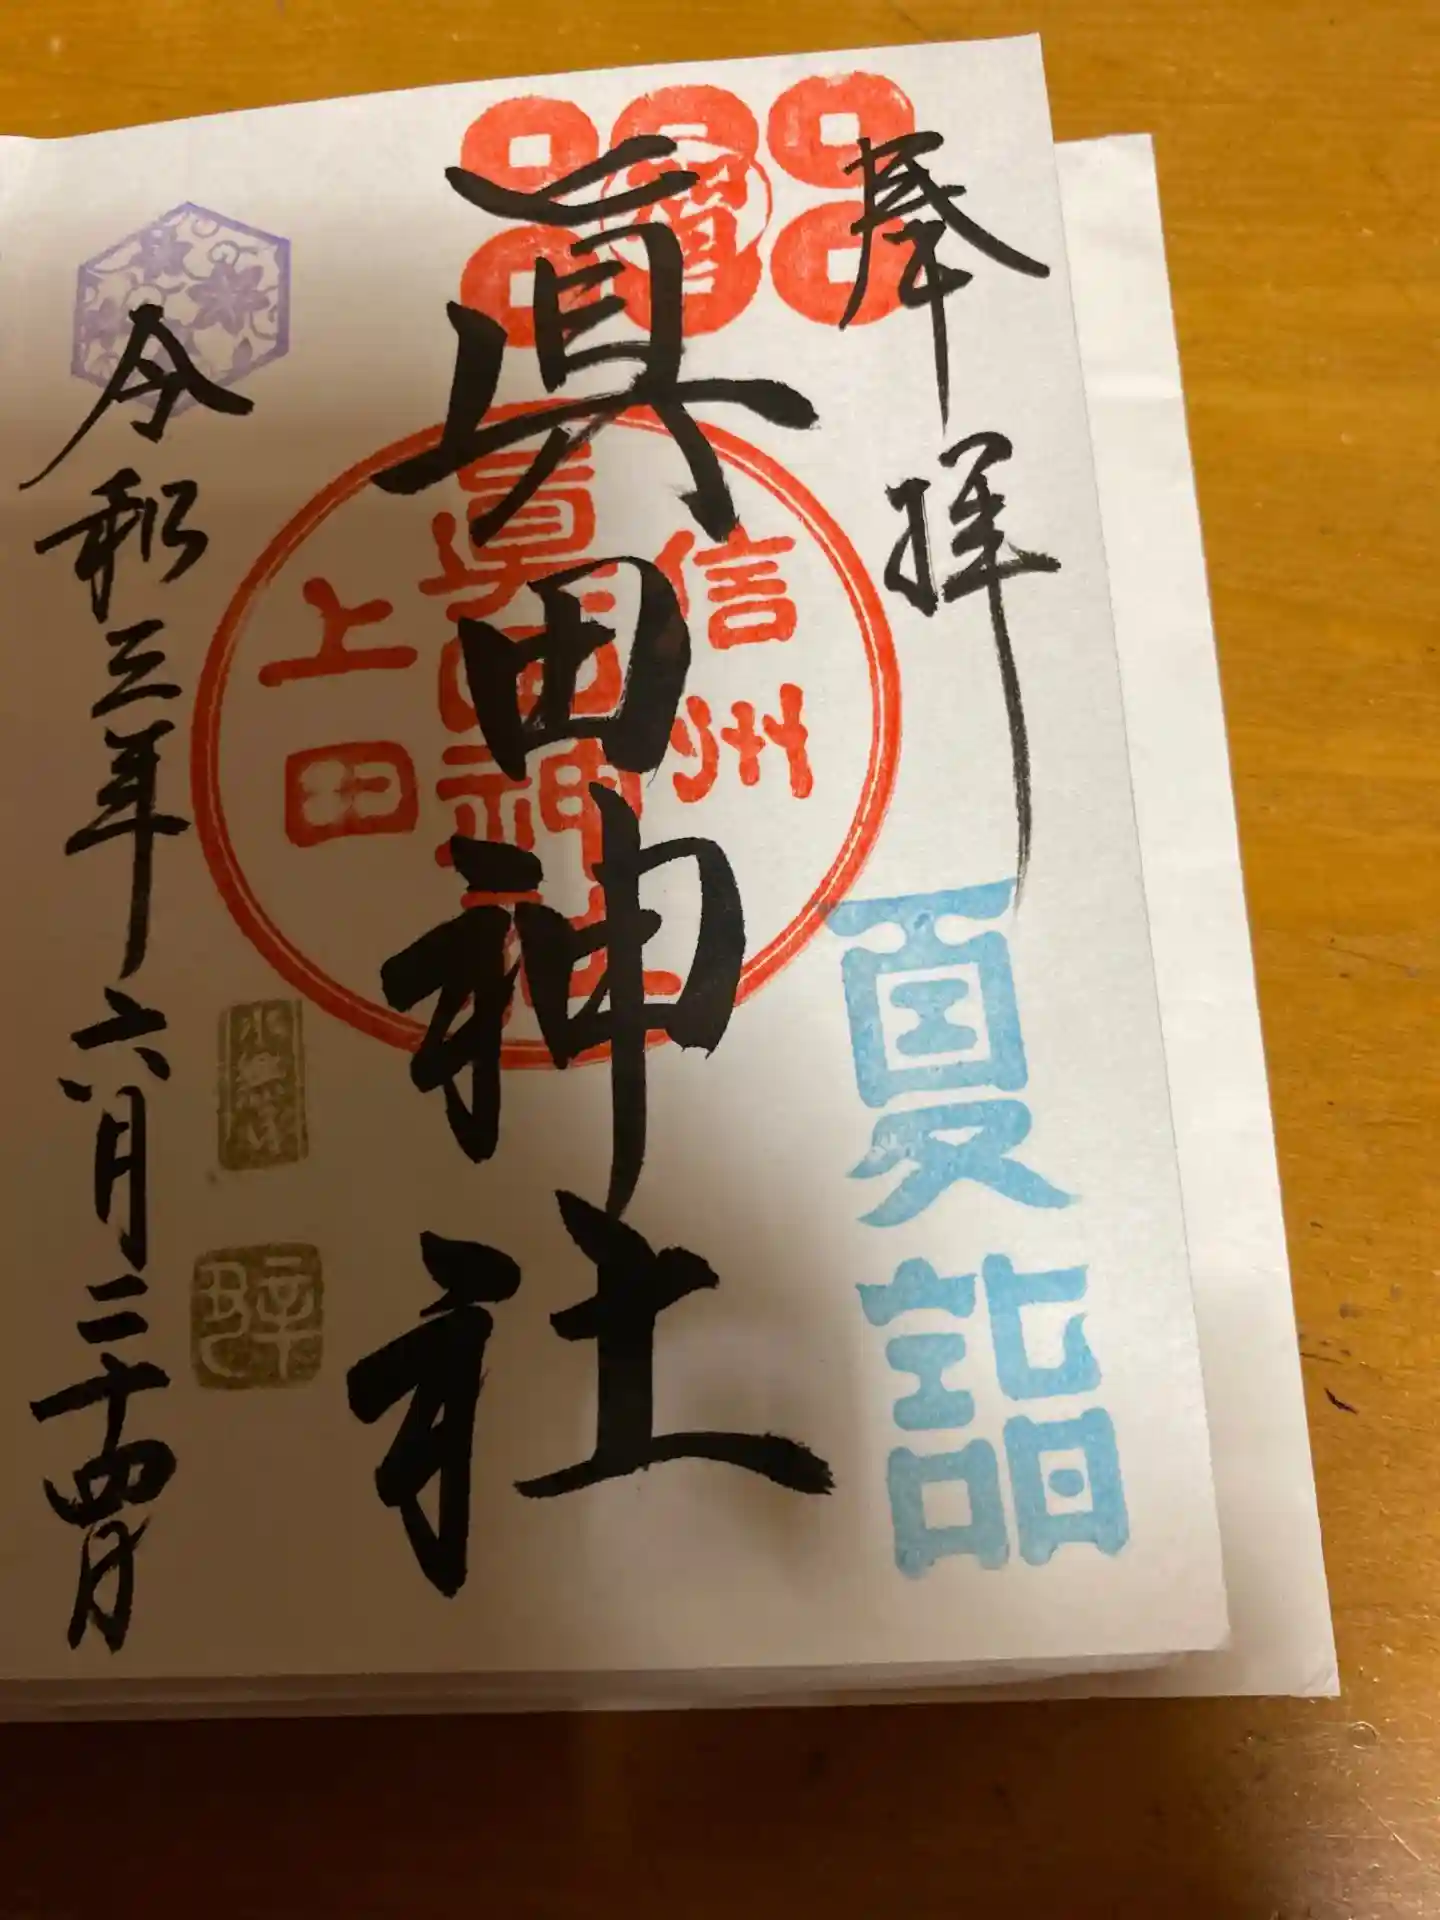 奉拝
夏詣
眞田神社
信州
眞田神社
上田
令和三年六月二十四日
辛丑